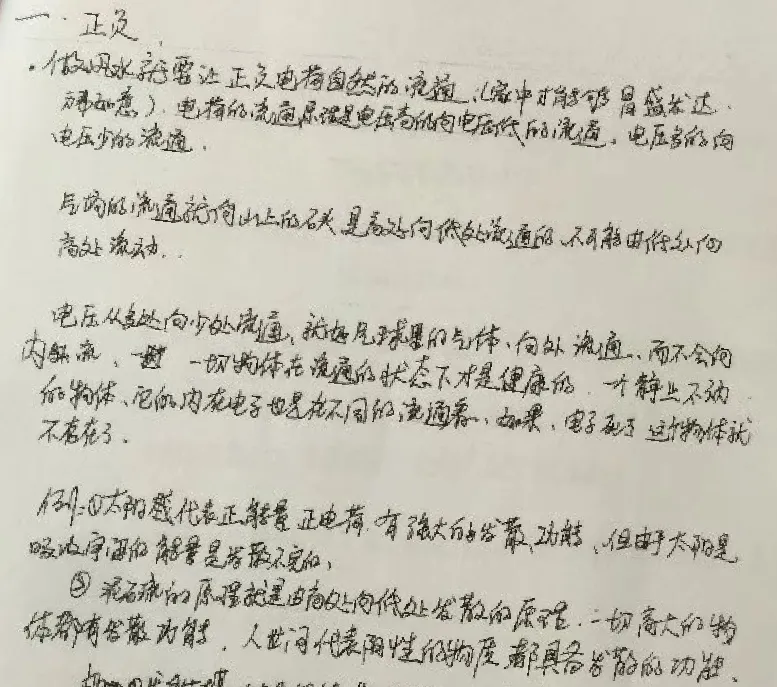 一. 正负
. 做风水就要让正负电荷自然的流通、(家中才能够昌盛发达.
万事如意). 电荷的流通原理是电压高的向电压低的流通, 电压多的向
电压少的流通.
气场的流通就像山上的石头是高处向低处流通的. 不可能由低处向
高处流动..
电压从多处向少处流通、就好气球里的气体、向外流通、而不会向
内流、一切物体在流通的状态下才是健康的. 一个静止不动
的物体、它的内在电子也是在不同的流通着、如果、电子死了这个物体就
不存在了.
例:①太阳代表正能量正电荷. 有强大的发散功能、但由于太阳是
吸收宇宙的能量是发散不完的、
② 泥石流的原理就是由高处向低处发散的原理. 一切高大的物
体都有发散功能. 人世间代表阳性的物质都具备发散的功能、